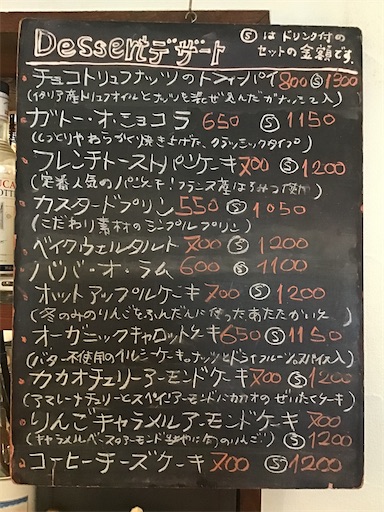 Dessert デザート
Ⓢは ドリンク付の
セットの金額です。
チョコトリュフナッツのトフィパイ 800 Ⓢ1300
(イタリア産トリュフオイルとナッツを混ぜ込んだガナッシュ入)
ガトー・オ・ショコラ 650 Ⓢ 1150
(しっとりやわらかく焼き上げた、クラシックタイプ)
フレンチトーストパンケーキ 700 Ⓢ 1200
(定番人気のパンケーキ!フランス産はちみつ使用)
カスタードプリン 550 Ⓢ 1050
(こだわり素材のシンプルプリン)
ベイクウェルタルト 700 Ⓢ 1200
ババ・オ・ラム 600 Ⓢ 1100
ホットアップルケーキ 700 Ⓢ 1200
(冬のみのりんごをふんだんに使ったあたたかい)
オーガニックキャロットケーキ 650 Ⓢ 1150
(バター不使用のオイルケーキ。ナッツとドライフルーツ。スパイス入)
カカオチェリーアーモンドケーキ 700 Ⓢ 1200
(アマレーナチェリーとスペインアーモンドとカカオのぜいたくケーキ)
りんごキャラメルアーモンドケーキ 700
(キャラメルベースのアーモンド生地に旬のりんご) Ⓢ 1200
コーヒーチーズケーキ 700 Ⓢ 1200